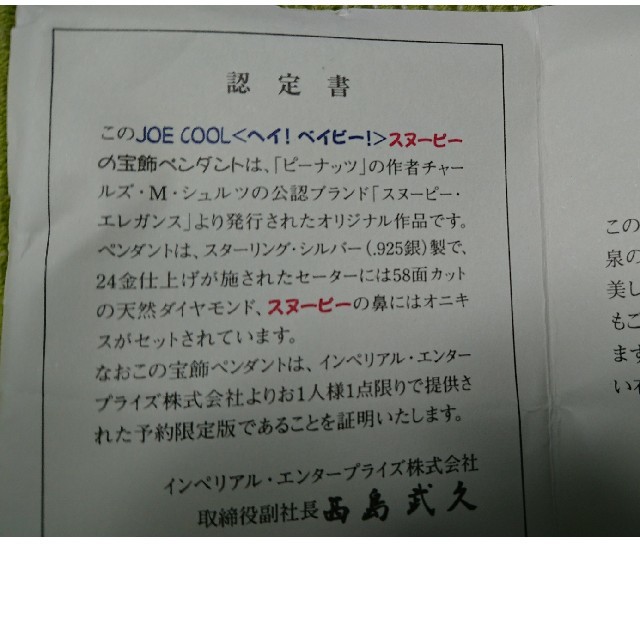 認定書
このJOE COOL<ヘイ! ベイビー!>スヌーピー
の宝飾ペンダントは、「ピーナッツ」の作者チャー
ルズ・M・シュルツの公認ブランド「スヌーピー・
エレガンス」より発行されたオリジナル作品です。
ペンダントは、スターリング・シルバー(.925銀)製で、
24金仕上げが施されたセーターには58面カット
の天然ダイヤモンド、スヌーピーの鼻にはオニキ
スがセットされています。
なおこの宝飾ペンダントは、インペリアル・エンター
プライズ株式会社よりお1人様1点限りで提供さ
れた予約限定版であることを証明いたします。
インペリアル・エンタープライズ株式会社
取締役副社長 西島武久
この
泉の
美し
もご
ます
い